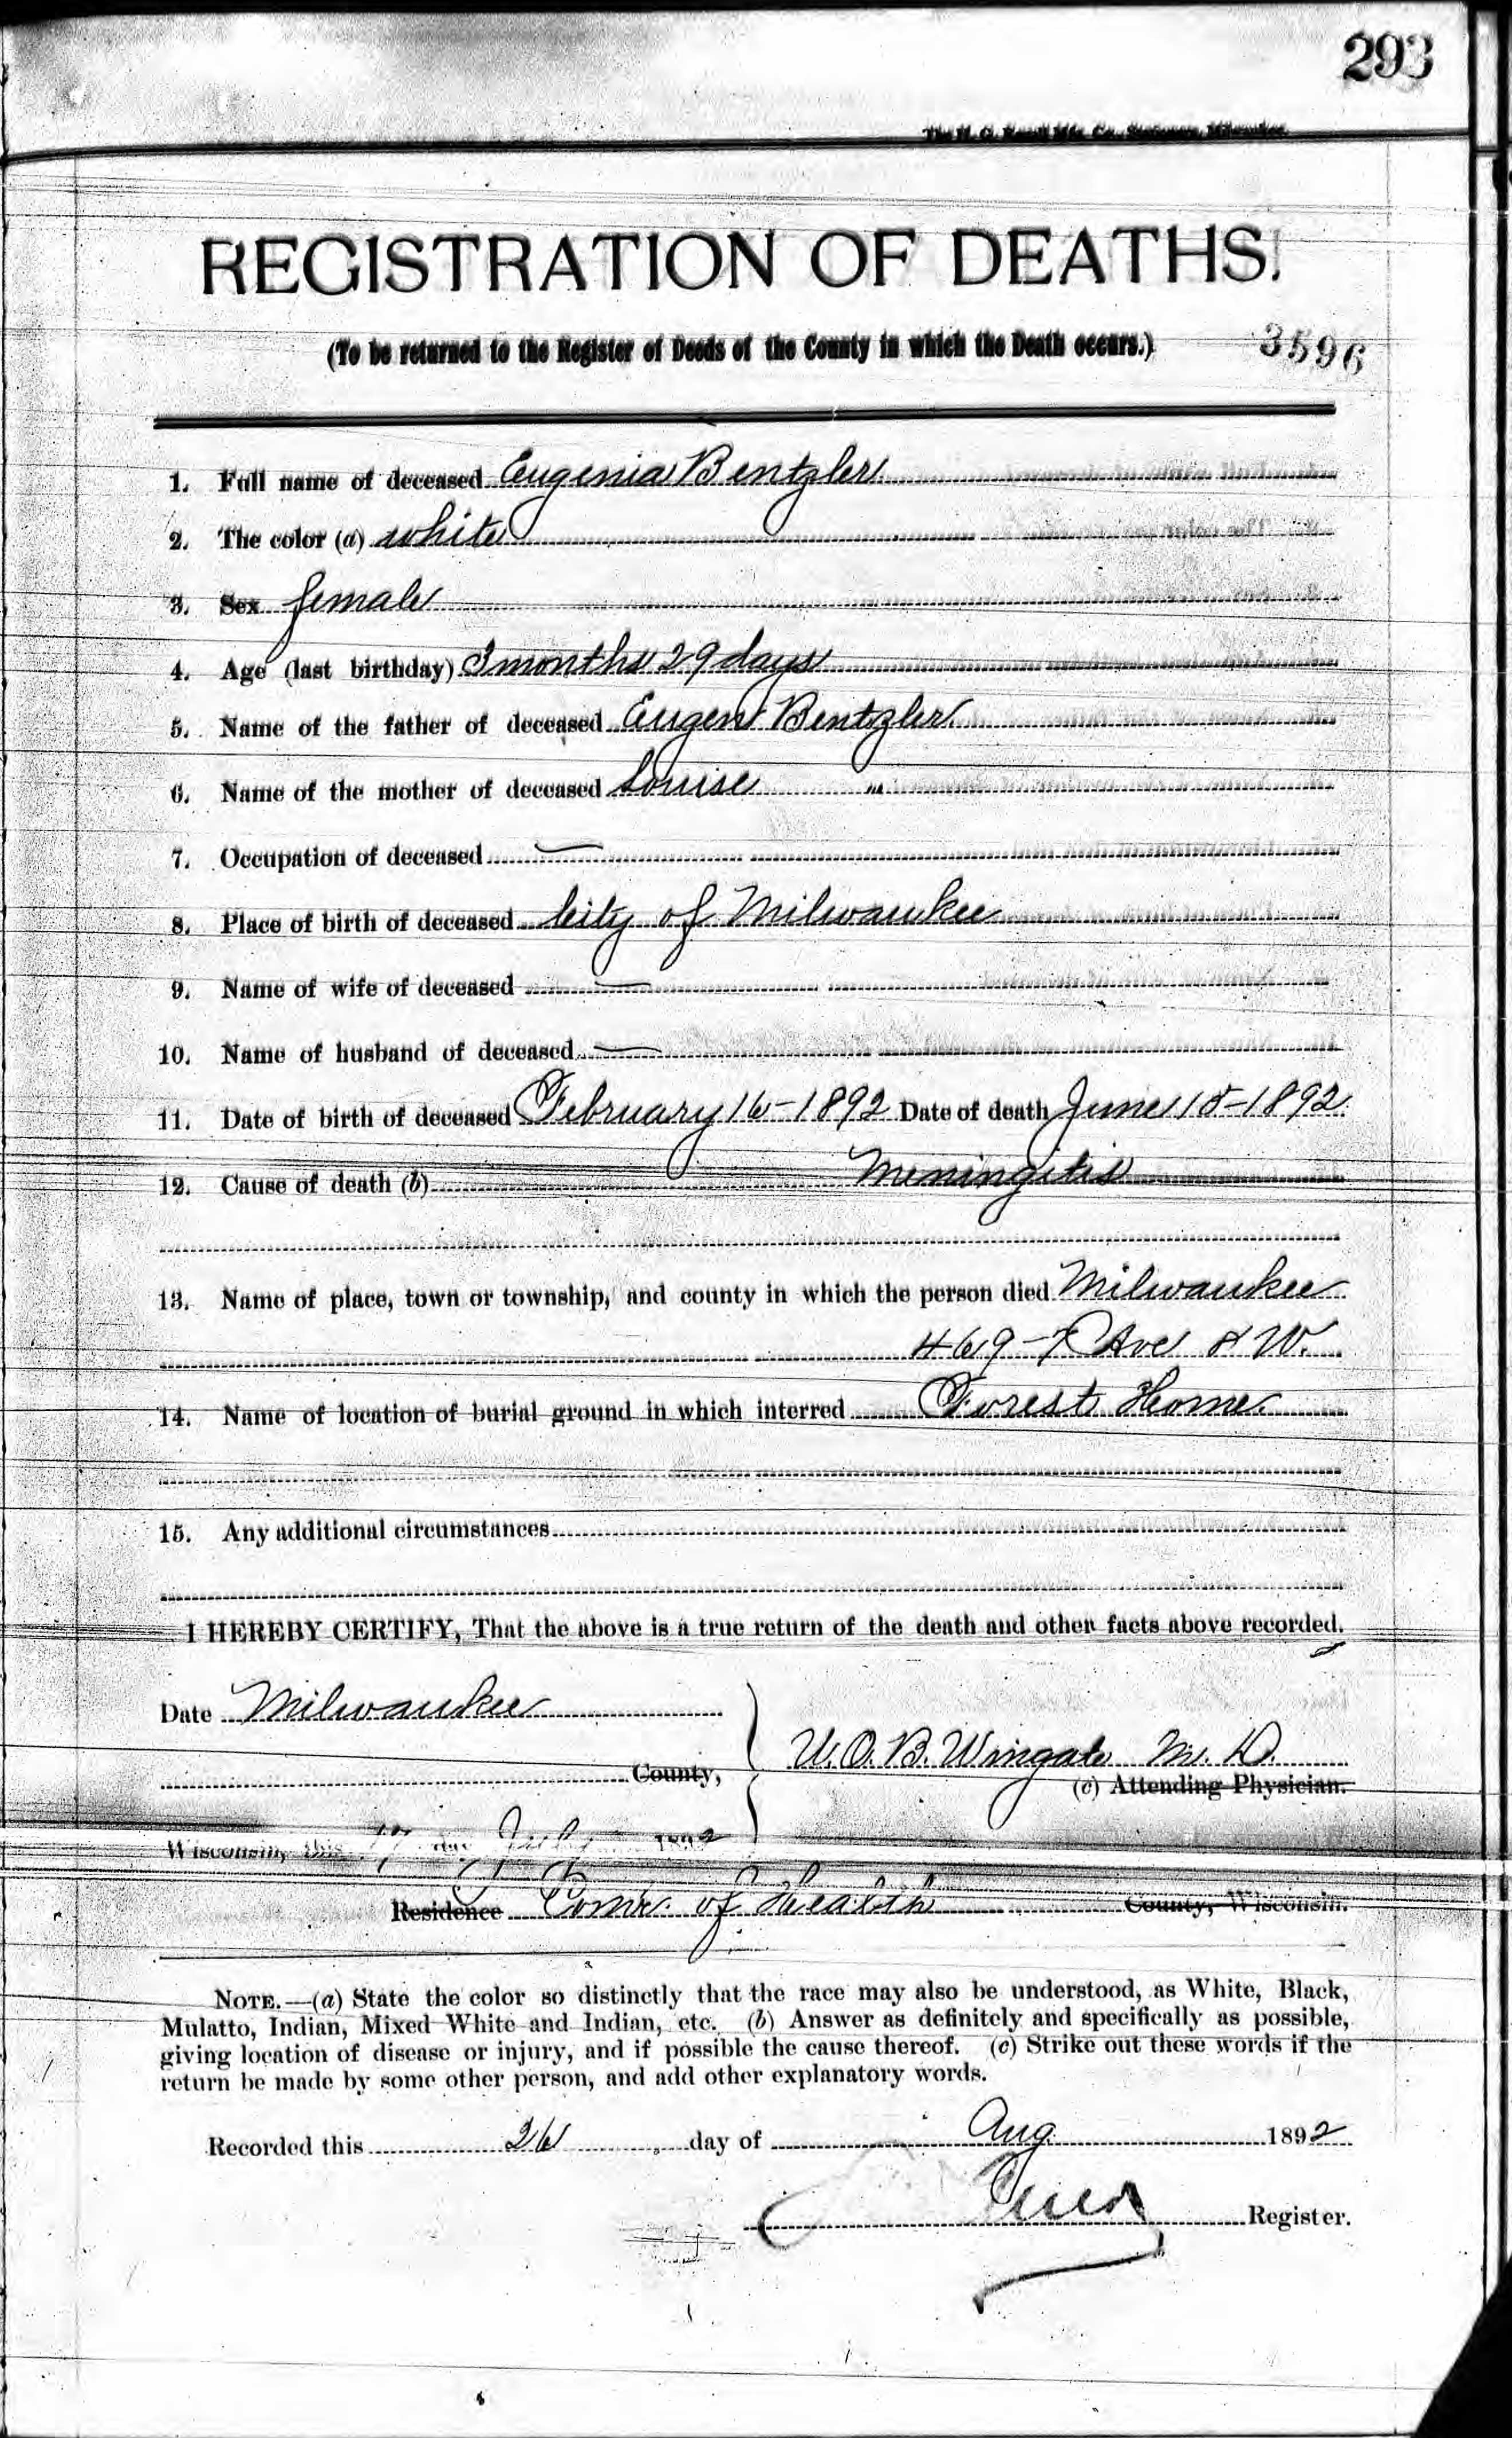 293
REGISTRATION OF DEATHS.
(To be returned to the Register of Deeds of the County in which the Death occurs.) 3596
1. Full name of deceased Eugenia Bentzler
2. The color (a) white
3. Sex female
4. Age (last birthday) 3 months 29 days
5. Name of the father of deceased Eugen Bentzler
6. Name of the mother of deceased Louise "
7. Occupation of deceased —
8. Place of birth of deceased City of Milwaukee
9. Name of wife of deceased —
10. Name of husband of deceased —
11. Date of birth of deceased February 16-1892 Date of death June 15-1892
12. Cause of death (b) Meningitis
13. Name of place, town or township, and county in which the person died Milwaukee
469-7 Ave W.
14. Name of location of burial ground in which interred Forest Home
15. Any additional circumstances
I HEREBY CERTIFY, That the above is a true return of the death and other facts above recorded.
Date Milwaukee
U.O.B. Wingate M.D.
County,
(c) Attending Physician.
Wisconsin, this July 1892
Residence Comr. of Health County, Wisconsin.
NOTE.—(a) State the color so distinctly that the race may also be understood, as White, Black,
Mulatto, Indian, Mixed White and Indian, etc. (b) Answer as definitely and specifically as possible,
giving location of disease or injury, and if possible the cause thereof. (c) Strike out these words if the
return be made by some other person, and add other explanatory words.
Recorded this 26 day of Aug 1892
Register.